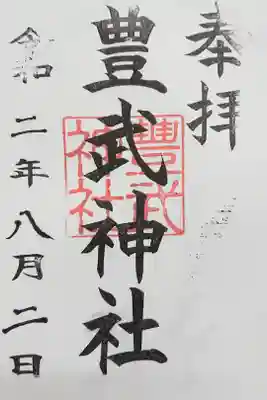 奉拝
豊武神社
豐武神社
令和二年八月二日